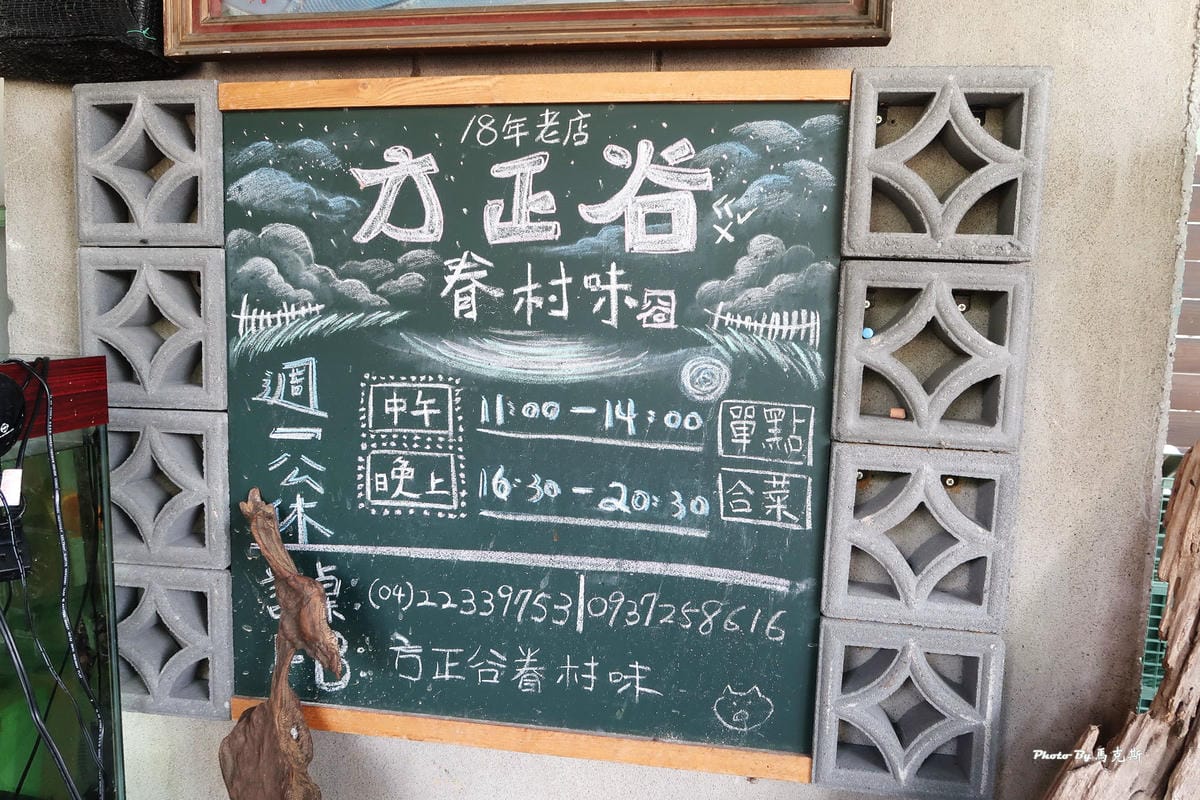 18年老店
方正谷
眷村味
週一公休
中午 11:00-14:00 單點
晚上 16:30-20:30 合菜
桌:(04)22339753|0937258616
B:方正谷眷村味
Photo By 馬克斯